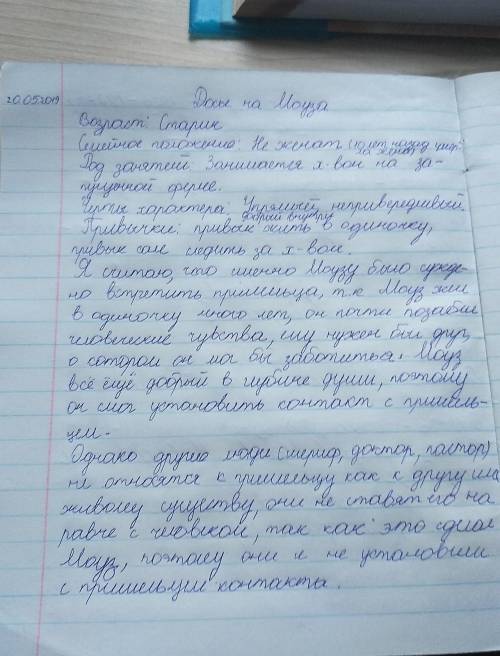 20.05.2019
Досье на Моуза
Возраст: Старик
Семейное положение: Не женат (10 лет назад умер-
ла жена)
Род занятей: Занимается х-вом на за-
пущенной ферме.
Черты характера: Упрямый, непривередливый,
добрый внутри
Привычки: привык жить в одиночку,
привык сам следить за х-вом.
Я считаю, что именно Моузу было сужде-
но встретить пришельца, т.к Моуз жил
в одиночку много лет, он почти позабыл
человеческие чувства, ему нужен был друг,
о котором он мог бы заботиться. Моуз
всё ещё добрый в глубине души, поэтому
он смог установить контакт с пришель-
цем.
Однако другие люди (шериф, доктор, пастор)
не относятся к пришельцу как к другу или
живому существу, они не ставят его на
равне с человеком, так как это сделал
Моуз, поэтому они и не установили
с пришельцем контакта.